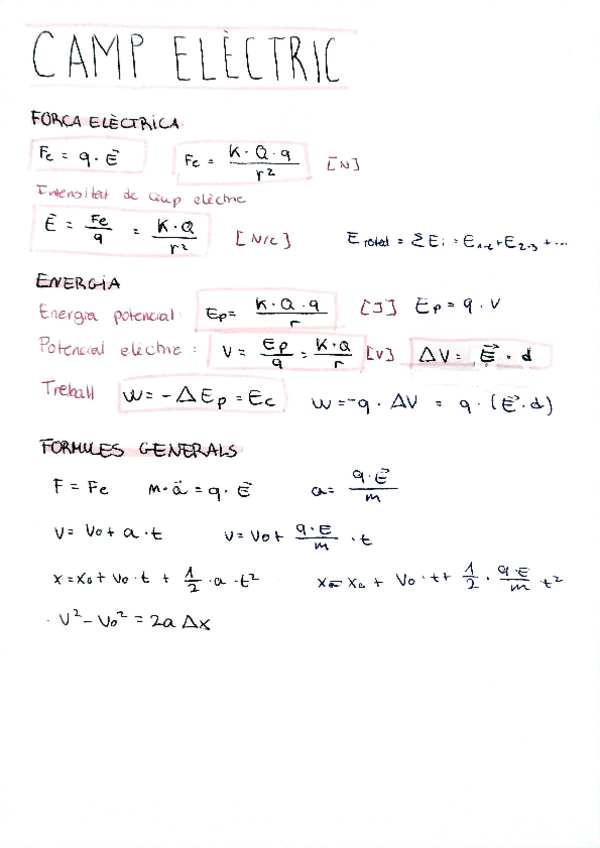 CAMP ELÈCTRIC
FORÇA ELÈCTRICA
Fe = q · E⃗   Fe = K · Q · q / r²   [N]
Intensitat de camp elèctric
E⃗ = Fe / q = K · Q / r²   [N/C]   E total = ΣEi = E1-2 + E2-3 + ...
ENERGIA
Energia potencial: Ep = K · Q · q / r   [J]   Ep = q · V
Potencial elèctric: V = Ep / q = K · Q / r   [V]   ΔV = E⃗ · d
Treball   W = - ΔEp = Ec   W = -q · ΔV = q · (E⃗ · d)
FORMULES GENERALS
F = Fe   m · a⃗ = q · E⃗   a = q · E⃗ / m
V = Vo + a · t   V = Vo + q · E / m · t
x = xo + Vo · t + 1/2 · a · t²   x = xo + Vo · t + 1/2 · q · E / m t²
· V² - Vo² = 2a Δx